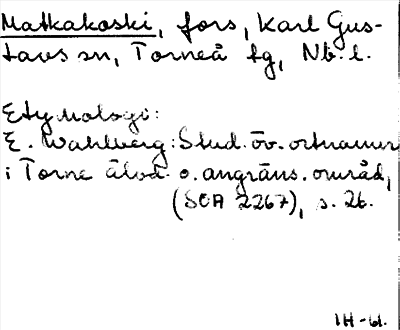 Matkakoski, fors, Karl Gus-
tavs sn, Torneå tg, Nb. l.
Etymologi:
E. Wahlberg: Stud. öv. ortnamn
i Torne älvd. o. angräns. områd,
(SOA 2267), s. 26.
IH-61.